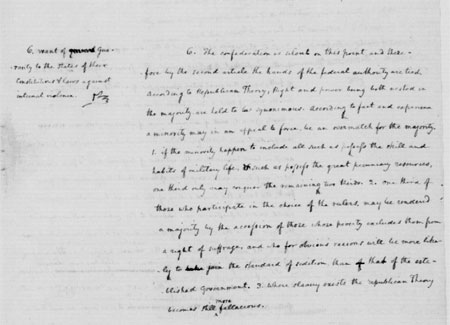 6. want of Gua-
ranty to the States of their
Constitutions & laws against
internal violence.
6. The confederation is silent on this point and there-
fore by the second article the hands of the federal authority are tied.
According to Republican Theory, Right and power being both vested in
the majority, are held to be synonimous. According to fact and experience
a minority may in an appeal to force, be an overmatch for the majority.
1. if the minority happen to include all such as possess the skill and
habits of military life, & such as possess the great pecuniary resources,
one third only may conquer the remaining two thirds. 2. one third of
those who participate in the choice of the rulers, may be rendered
a majority by the accession of those whose poverty excludes them from
a right of suffrage, and who for obvious reasons will be more like-
ly to join the standard of sedition than that of the esta-
blished Government. 3. where slavery exists the republican Theory
becomes still more fallacious.